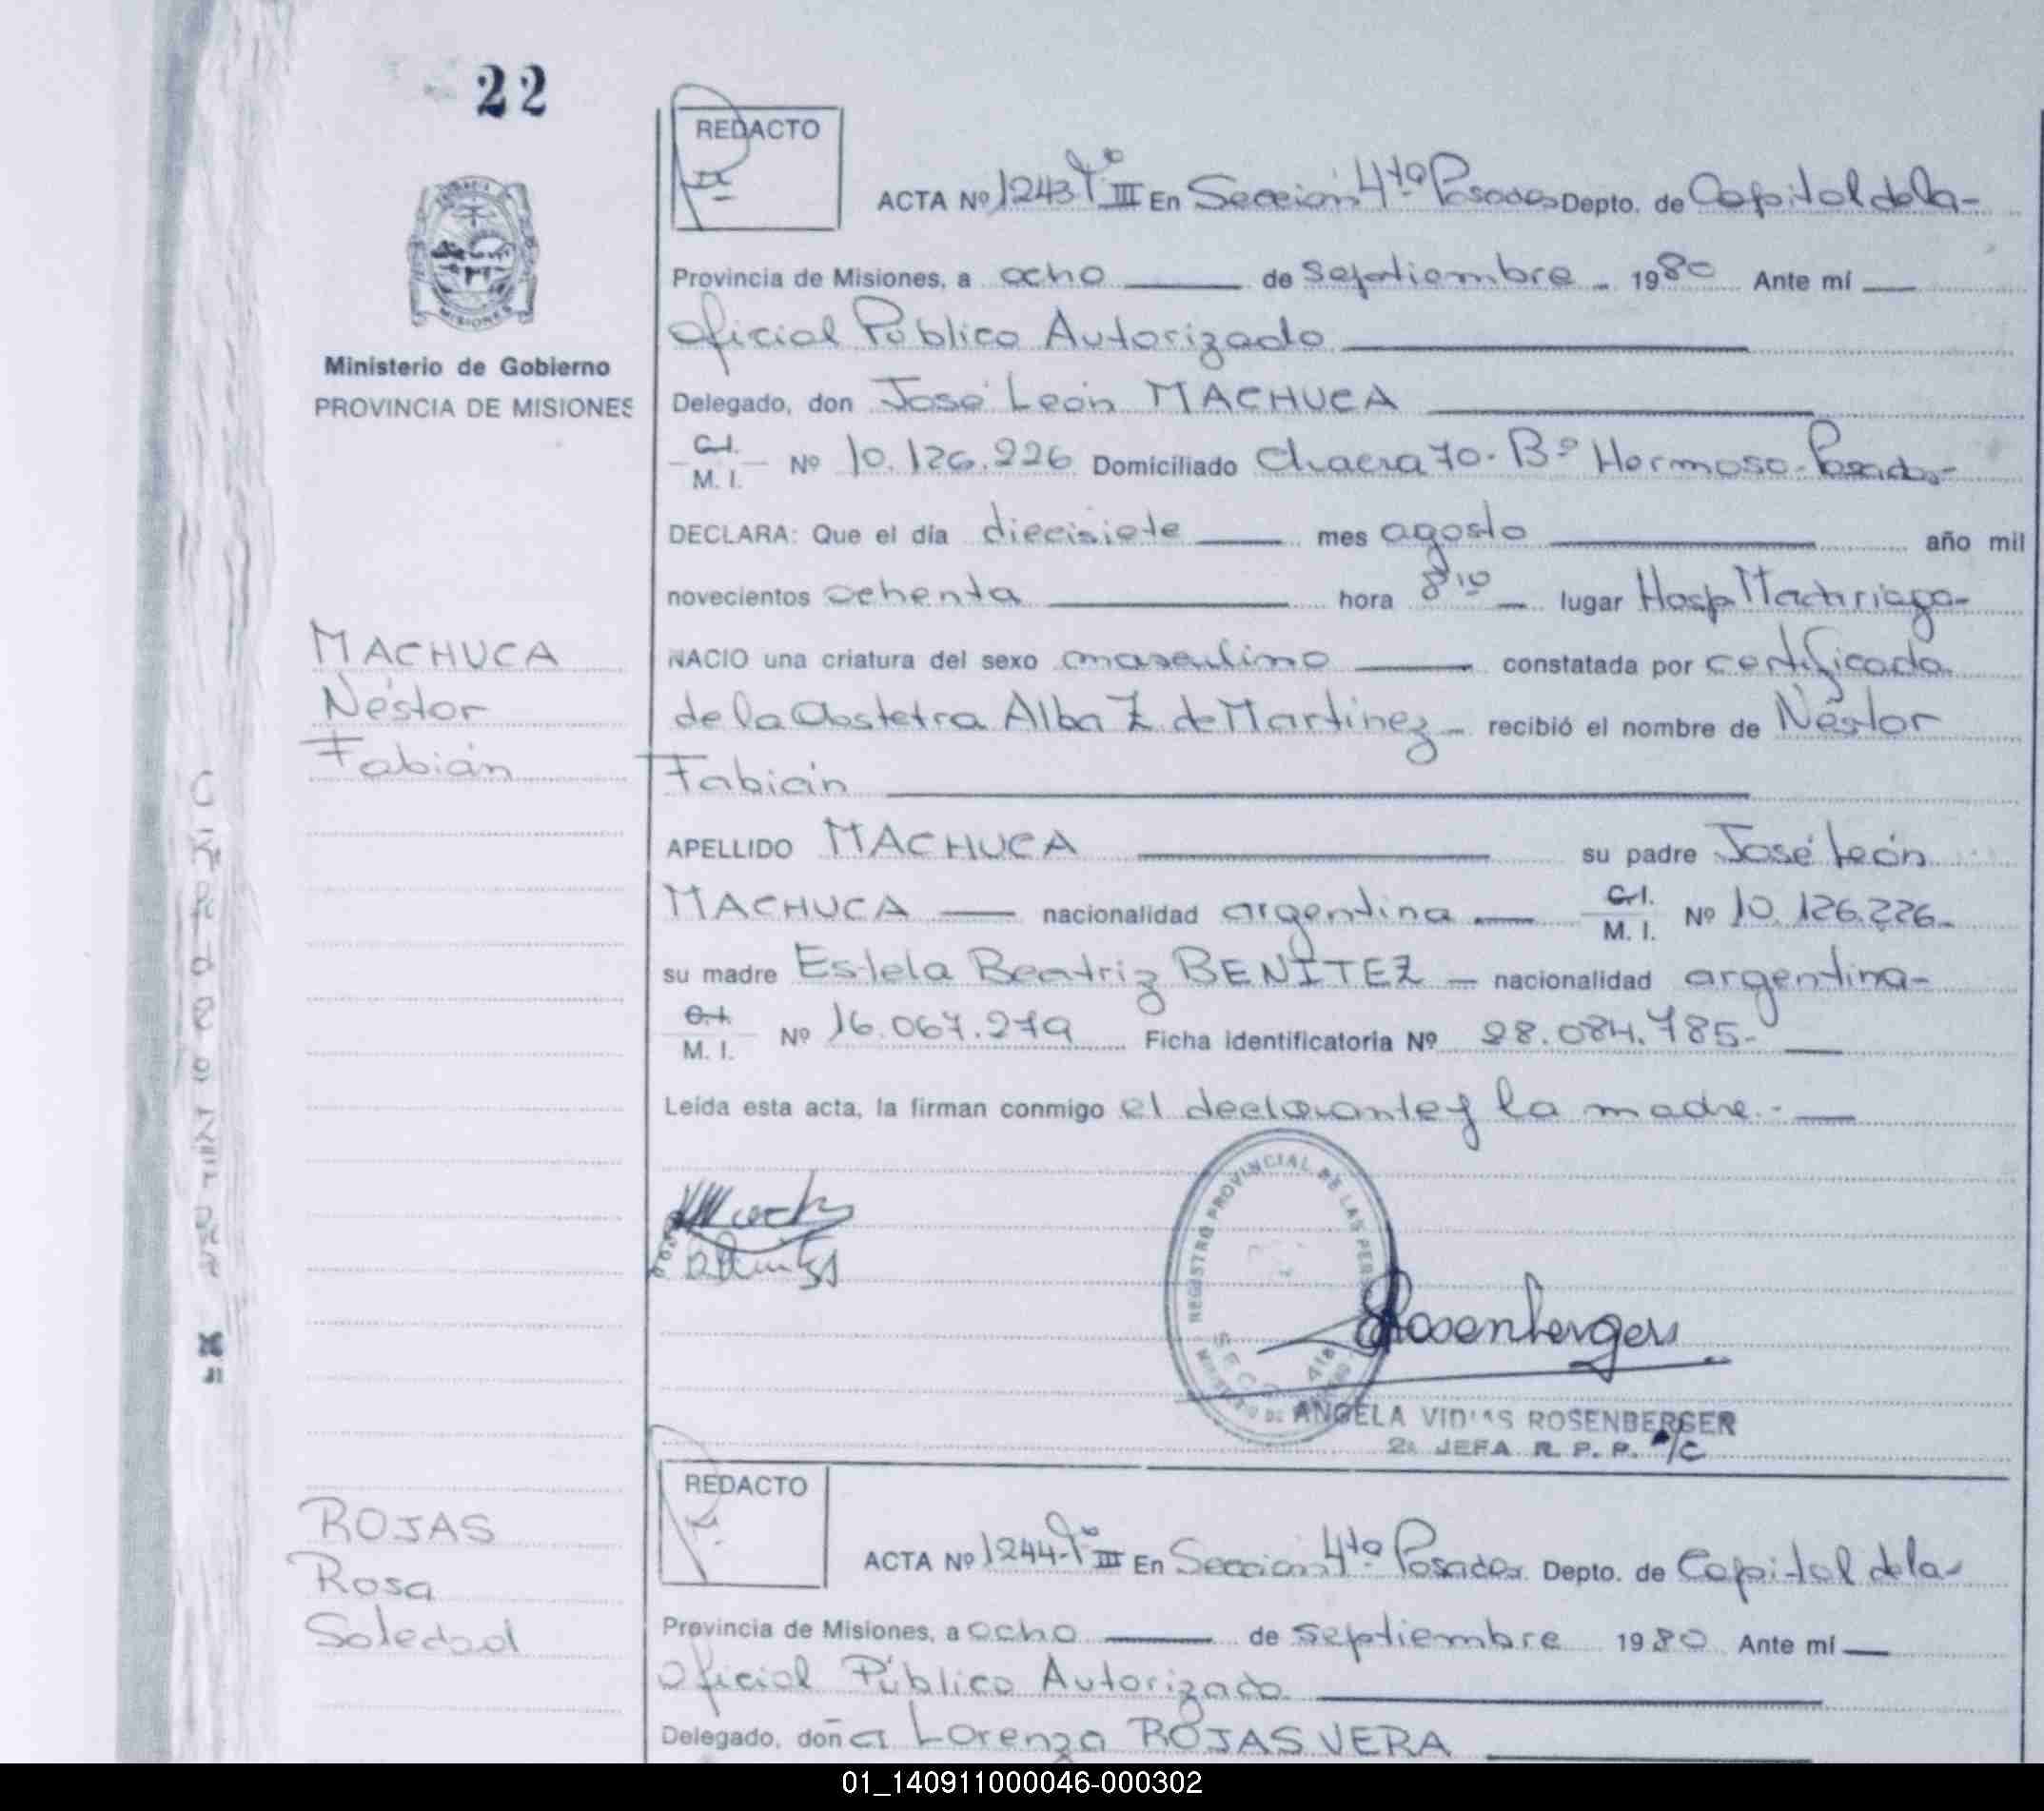 22
REDACTO
ACTA Nº 1243 Tº III En Sección 4ta Posadas Depto. de Capital de la-
Provincia de Misiones, a ocho de septiembre 1980 Ante mí
Oficial Público Autorizado
Ministerio de Gobierno
PROVINCIA DE MISIONES
Delegado, don José León MACHUCA
C.I.
M. I. Nº 10.126.226 Domiciliado Chacra 70. Bº Hermoso. Posadas-
DECLARA: Que el día diecisiete mes agosto año mil
novecientos ochenta hora 8 10 lugar Hosp Madariaga-
MACHUCA
Néstor
Fabián
NACIO una criatura del sexo masculino constatada por certificado
de la Obstetra Alba Z. de Martinez- recibió el nombre de Néstor
Fabián
APELLIDO MACHUCA su padre José León
MACHUCA nacionalidad argentina C.I.
M. I. Nº 10.126.226-
su madre Estela Beatriz BENITEZ - nacionalidad argentina-
C.I.
M. I. Nº 16.067.279 Ficha identificatoria Nº 28.084.785-
Leída esta acta, la firman conmigo el declarante y la madre.-
REGISTRO PROVINCIAL DE LAS
Rosenberger
ANGELA VIDAS ROSENBERGER
2ª JEFA R. P. P. a/c
REDACTO
ROJAS
Rosa
Soledad
ACTA Nº 1244 Tº III En Sección 4ta Posadas Depto. de Capital de la-
Provincia de Misiones, a ocho de septiembre 1980 Ante mí
Oficial Público Autorizado
Delegado, doña Lorenza ROJAS VERA
01_140911000046-000302